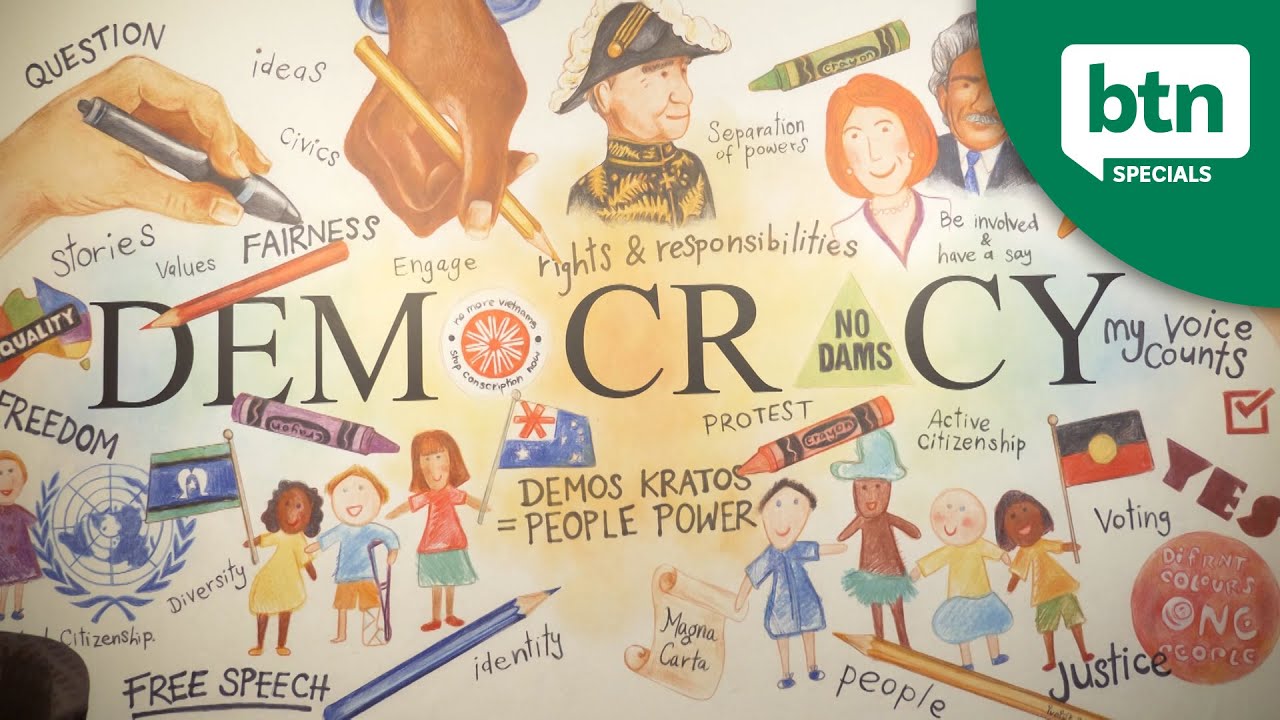 QUESTION
ideas
Civics
Stories
Values
FAIRNESS
Engage
crayon
Separation
of powers
rights & responsibilities
Be involved
&
have a say
btn
SPECIALS
EQUALITY
DEMOCRACY
no more vietnams
stop conscription now
NO
DAMS
my voice
counts
FREEDOM
crayon
PROTEST
crayon
Active
Citizenship
DEMOS KRATOS
= PEOPLE POWER
Voting
YES
Diversity
Citizenship.
FREE SPEECH
identity
Magna
Carta
people
Justice
DIFRNT
COLOURS
ONE
PEOPLE